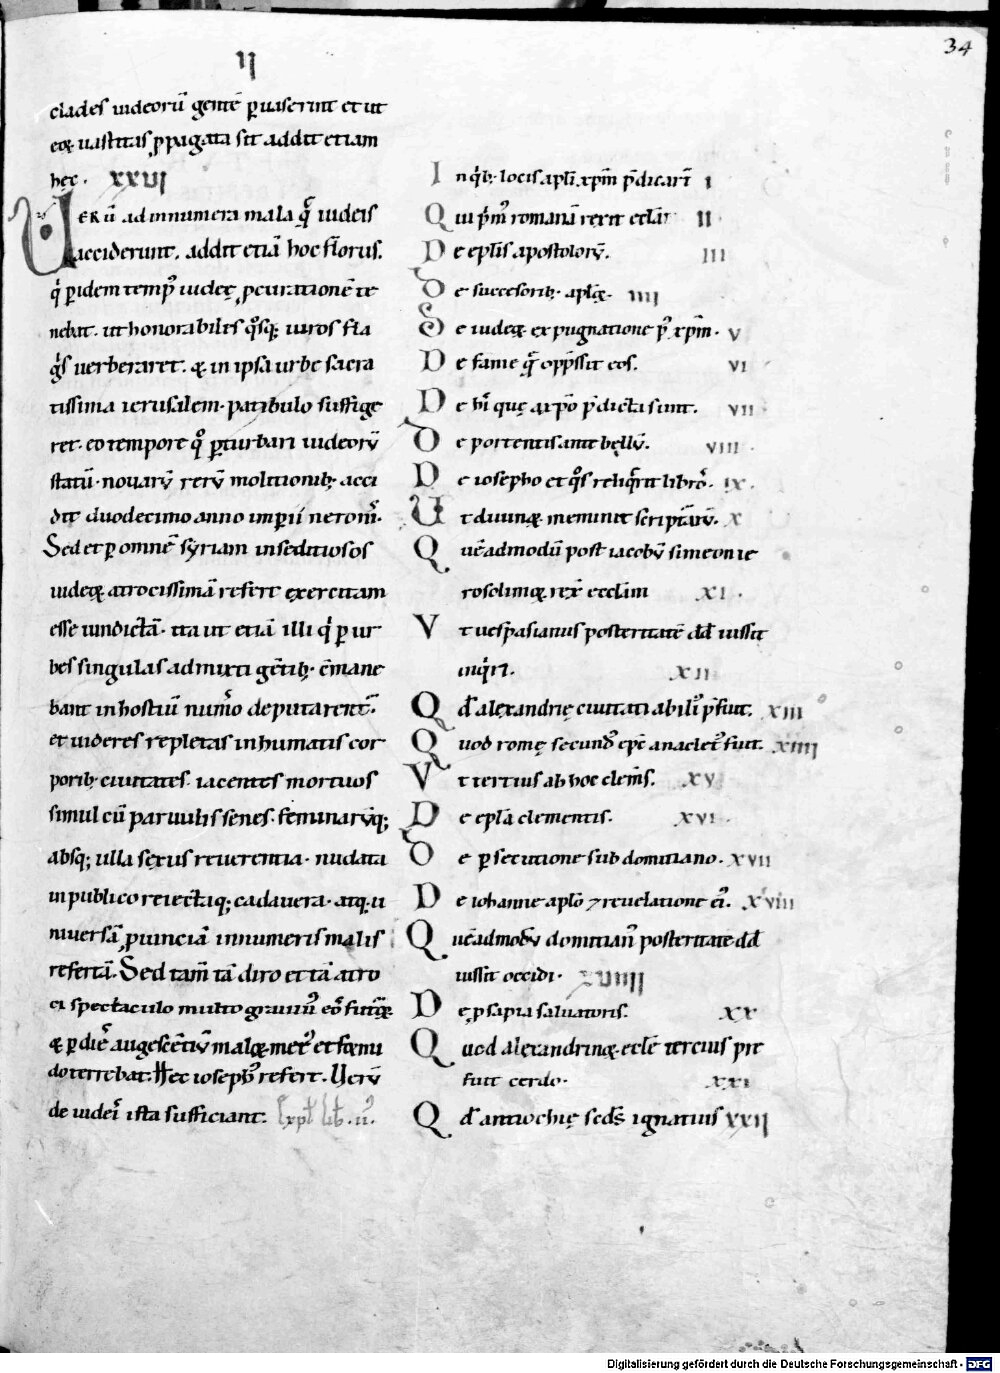 II
34
clades iudeorū gentē ꝑuaserint et ut
eoꝝ uastitas ꝓpagata sit addit etiam
hęc. XXVI
VERŪ ad innumera mala q̄ iudeis
acciderunt. addit etiā hoc flauiorus.
q' ꝑidem temp' iudeę ꝓcurationē te
nebat. ut honorabiles q°sq; uiros fla
g'is uerberaret. & in ipsa urbe sacra
tissima ierusalem. patibulo suffige
ret. eo tempore q° ꝑturbari iudeoꝝ
statū. nouaꝝ rerū molitionib; acci
dit duodecimo anno imperii neronis.
Sed et ꝑ omnē syriam in seditiosos
iudeoꝝ atrocissimā refert exercitam
esse uindictā. ita ut etiā illi q' ꝑ ur
bes singulas admixti gētib; cōmane
bant in hostiū numō deputarent'.
et uideres repletas inhumatis cor
porib; ciuitates. iacentes mortuos
simul cū paruulis senes. feminarūq;
absq; ulla sexus reuerentia. nudata
in publico reiectaq; cadauera. atq; u
niuersā ꝓuinciā innumeris malis
refertā. Sed tam̄ tā diro et tā atro
ci spectaculo multo grauiꝰ eoꝝ futuraꝝ
& ꝑ diē augescētiū maloꝝ met' et formi
do terrebat. Hęc ioseph' refert. Uerū
de iudeis ista sufficiant. Expl̄ lib̄. ii'.
In q'b; locis apl̄i xpm̄ p̄dicarī I
Qui p̄m' romanā rexit eccl̄iā II
De epl̄is apostoloꝝ. III
De succesorib; aploꝝ. IIII
De iudeoꝝ expugnatione p' xpm̄. V
De fame q̄ opp̄ssit eos. VI
De hi' quę a xpō p̄dicta sunt. VII
De portentis ante bellū. VIII
De iosepho et q°s reliq'rit libro'. IX.
Ut diuinaꝝ meminit scripturaꝝ. X
Quēadmodū post iacobū simeon ie
rosolimoꝝ rex' ecclām XI.
Vt uespasianus posteritatē dd̄ iussit
inq'ri. XII
Qd̄ alexandrię ciuitati abili' p̄fuit. XIII
Quod romę secund' ep̄c anaclet' fuit. XIIII
Vt tertius ab hoc clem̄s. XV
De epl̄a clementis. XVI.
De ꝑsecutione sub domitiano. XVII
De iohanne aplo ⁊ reuelatione ei'. XVIII
Quēadmodū domitian' posteritatē dd̄
iussit occidi. XVIIII
De ꝓsapia saluatoris. XX
Quod alexandrinoꝝ eccl̄ē tercius p̄ē
fuit cerdo. XXI
Qd̄ antiochię sed's ignatius XXII
Digitalisierung gefördert durch die Deutsche Forschungsgemeinschaft - DFG